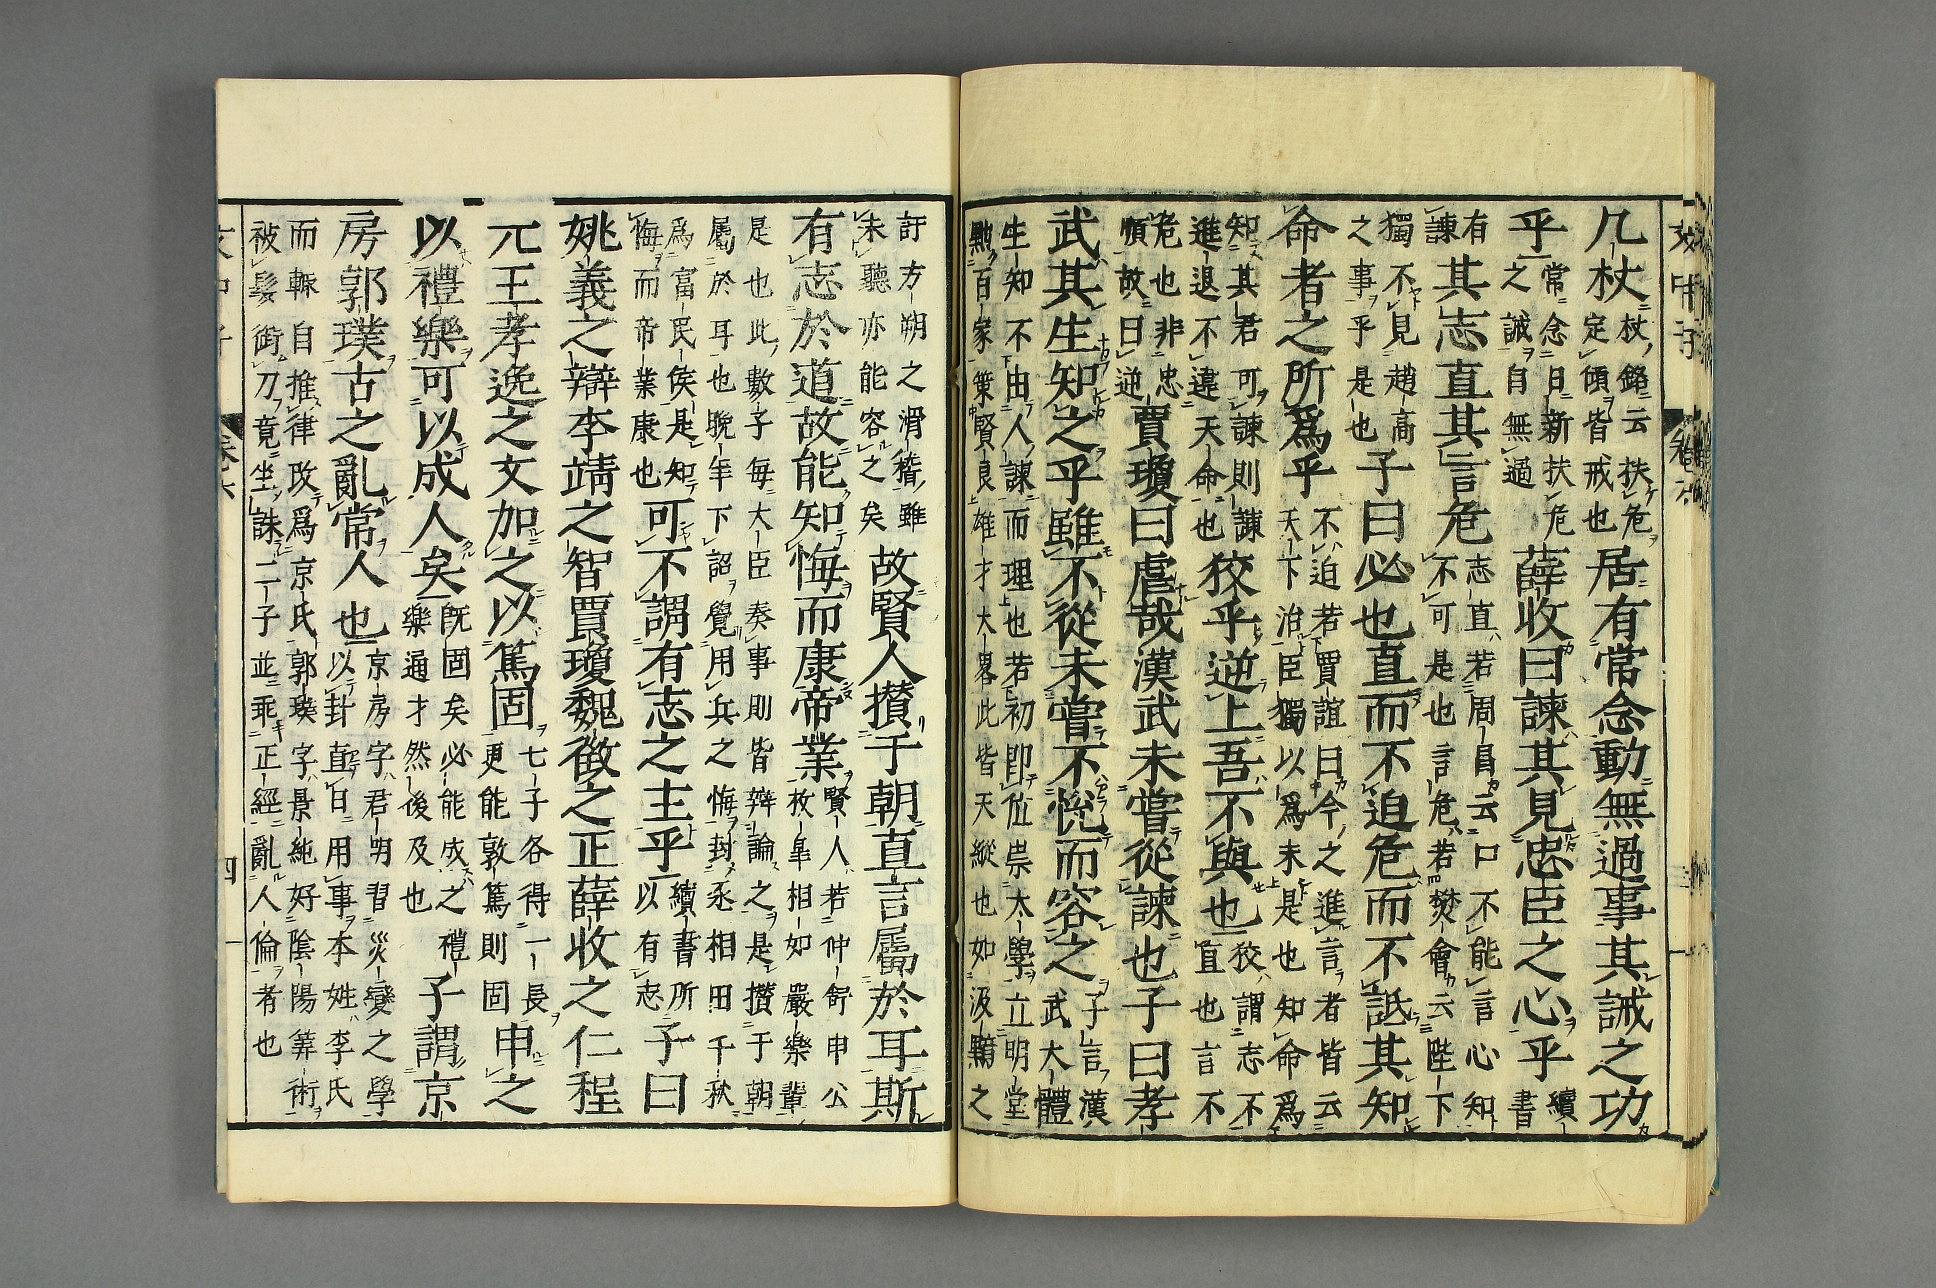 文中子
几杖杖銘云扶危定傾皆戒也居有常念動無過事其誡之功
乎常念日新扶危之誠自無過薛收曰諫其見忠臣之心乎續書
有諫其志直其言危志直若周昌云口不能言心知不可是也言危若焚會云陛下
獨不見趙高之事乎是也子曰必也直而不迫危而不詆其知
命者之所爲乎不迫若賈誼曰今之進言者皆云天下治臣獨以爲未是也知命爲
知其君可諫則諫進退不違天命也狡乎逆上吾不與也狡謂志不直也言不
危也非忠順故曰逆賈瓊曰虐哉漢武未嘗從諫也子曰孝
武其生知之乎雖不從未嘗不悅而容之子言漢武大體
生知不由人諫而理也若初即位崇太學立明堂
黜百家策賢良雄才大畧此皆天縱也如汲黯之
訐方朔之滑稽雖未聽亦能容之矣故賢人攅于朝直言屬於耳斯
有志於道故能知悔而康帝業賢人若仲舒申公枚皋相如嚴樂輩
是也此數子每大臣奏事則皆辯論之是攢于朝
屬於耳也晚年下詔覺用兵之悔封丞相田千秋
爲富民侯是知悔而帝業康也可不謂有志之主乎續書所以有志子曰
姚義之辯李靖之智賈瓊魏徵之正薛收之仁程
元王孝逸之文加之以篤固七子各得一長更能敦篤則固申之
以禮樂可以成人矣既固矣必能成之禮樂通才然後及也子謂京
房郭璞古之亂常人也京房字君明習災變之學以卦直日用事本姓李氏
而輒自推律改爲京氏郭璞字景純好陰陽筭術
被髮銜刀竟坐誅二子並乖正經亂人倫者也
卷六
四